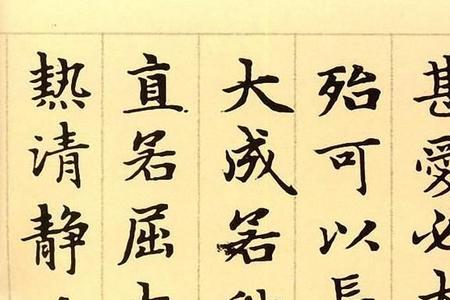 甚愛必
殆可以長
大成若
直若屈
熱清静